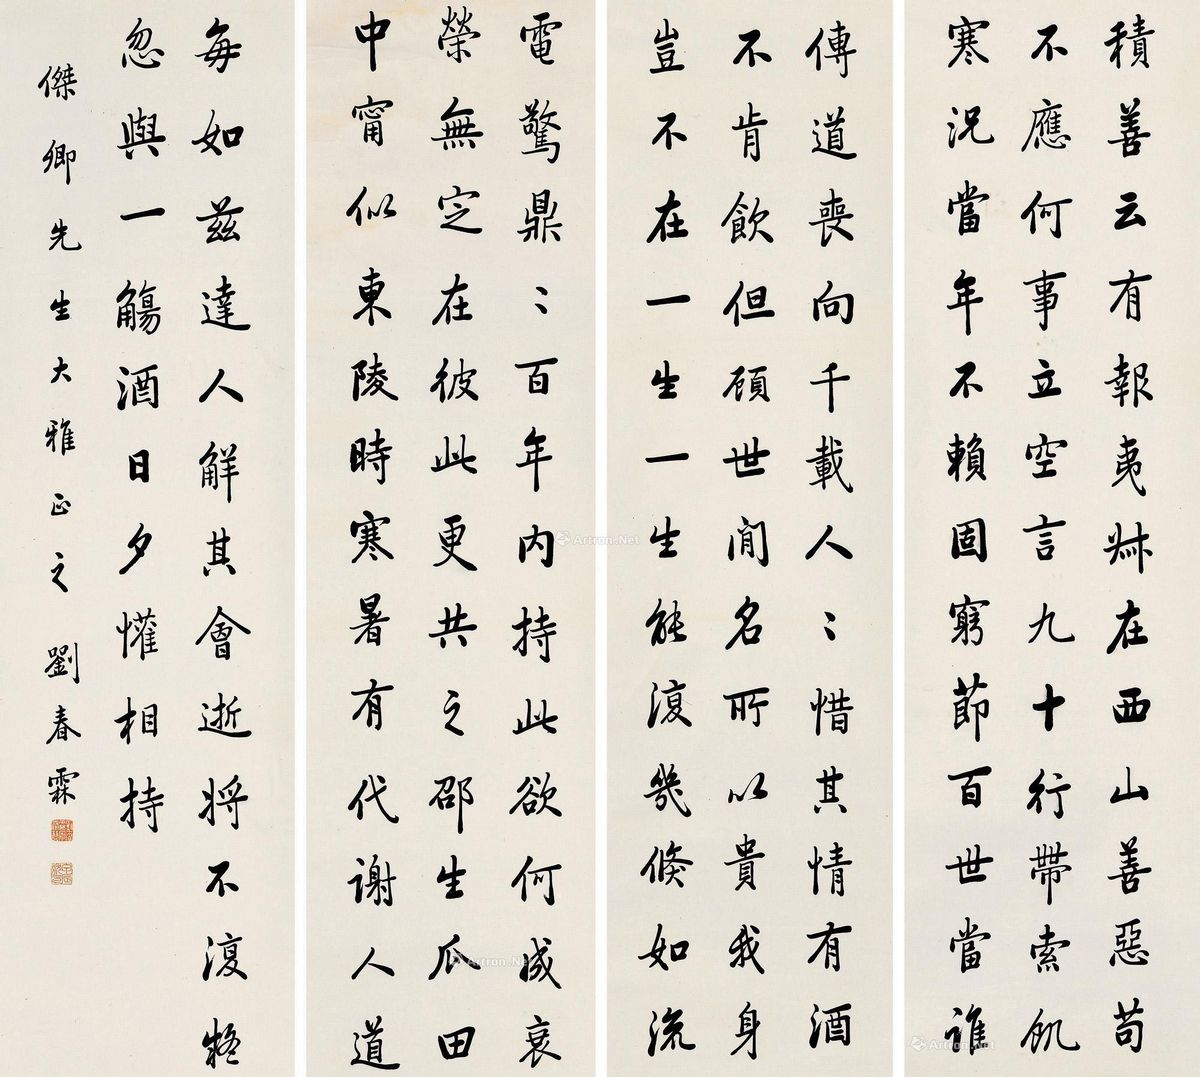 積善云有報夷叔在西山善惡苟
不應何事立空言九十行帶索飢
寒況當年不賴固窮節百世當誰
傳道喪向千載人〻惜其情有酒
不肯飲但顧世間名所以貴我身
豈不在一生一生能復幾倏如流
電驚鼎〻百年內持此欲何成衰
榮無定在彼此更共之邵生瓜田
中甯似東陵時寒暑有代謝人道
每如茲達人解其會逝將不復疑
忽與一觴酒日夕懽相持
傑卿先生大雅正之 劉春霖
Artron.Net
Artron.Net
Artron.Net